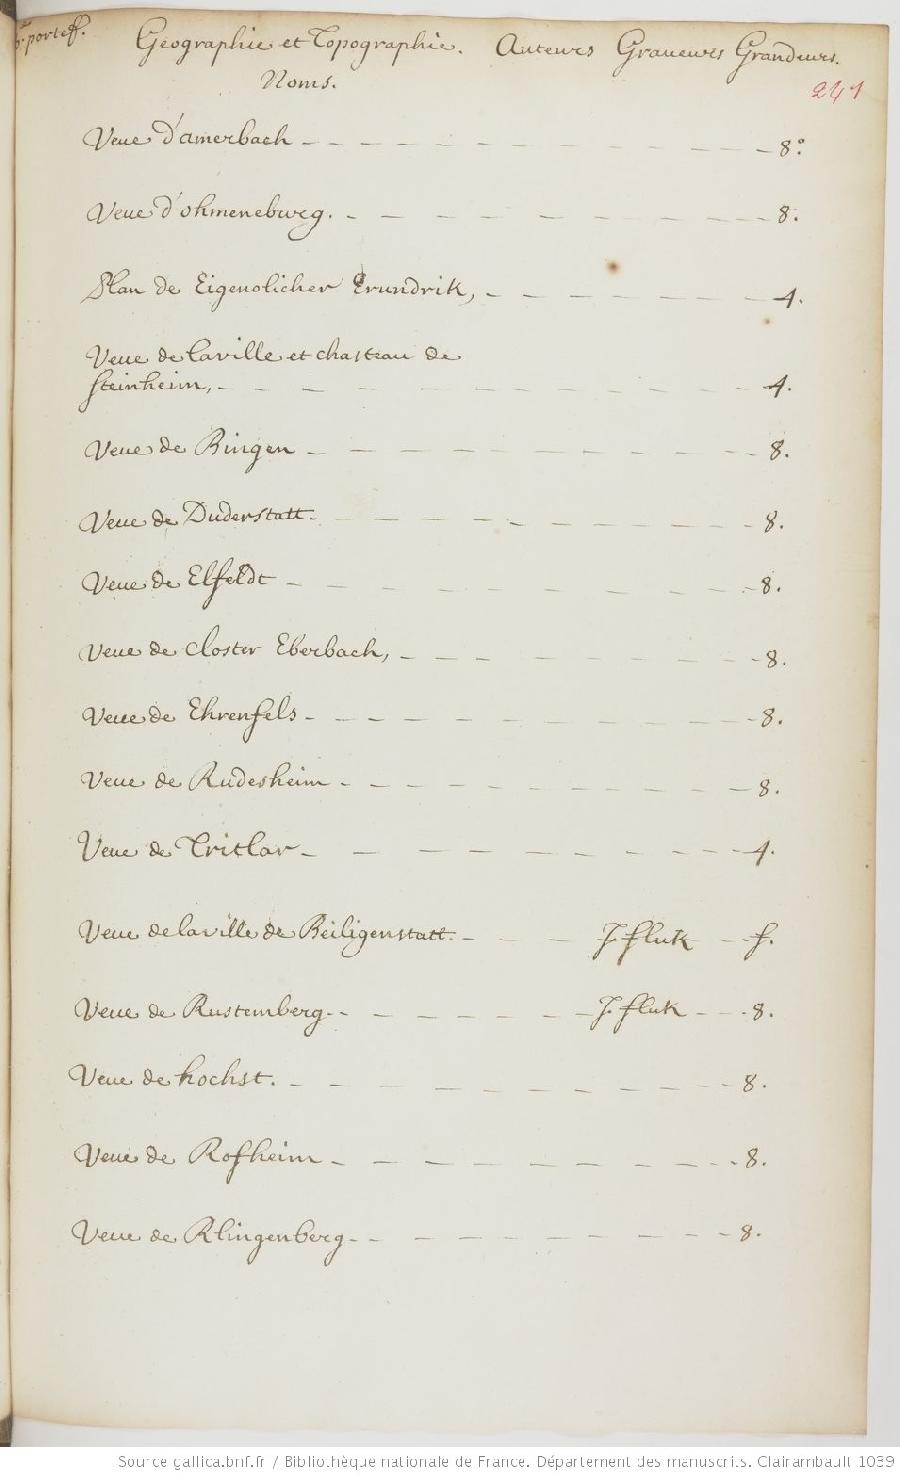 portef. Geographie et Topographie. Auteurs Graueurs Grandeurs.
Noms.
241
Veue d'amerbach 8°.
Veue d'ohmeneburg. 8.
Plan de Eigenolicher Erundrik, 4.
Veue de la ville et chasteau de
Steinheim, 4.
Veue de Bingen 8.
Veue de Duderstatt. 8.
Veue de Elfeldt 8.
Veue de Closter Eberbach, 8.
Veue de Ehrenfels 8.
Veue de Rudesheim 8.
Veue de Tritlar 4.
Veue de la ville de Beiligenstatt. J. fluk f.
Veue de Rustemberg J. fluk 8.
Veue de hochst. 8.
Veue de Rofheim 8.
Veue de Klingenberg 8.
Source gallica.bnf.fr / Bibliothèque nationale de France. Département des manuscrits. Clairambault 1039